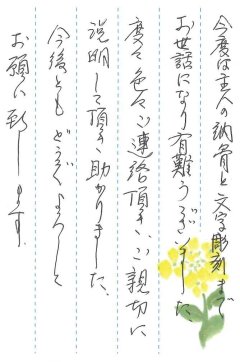 今度は主人の納骨と文字彫刻まで
お世話になり有難うございました
度々色々ご連絡頂き、ご親切に
説明して頂き助かりました、
今後ともどうぞよろしく
お願い致します。